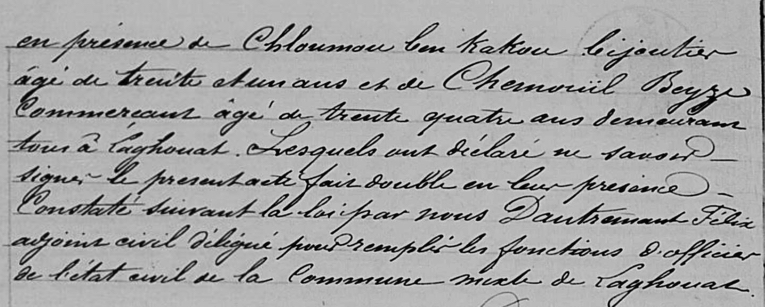 en présence de Chloumou ben Kakou bijoutier
âgé de trente et un ans et de Chemouïl Beyze
Commerçant âgé de trente quatre ans demeurant
tous à Laghouat. Lesquels ont déclaré ne savoir
signer le present acte fait double en leur présence
Constaté suivant la loi par nous Dautremant Félix
adjoint civil délégué pour remplir les fonctions d'officier
de l'état civil de la Commune mixte de Laghouat.